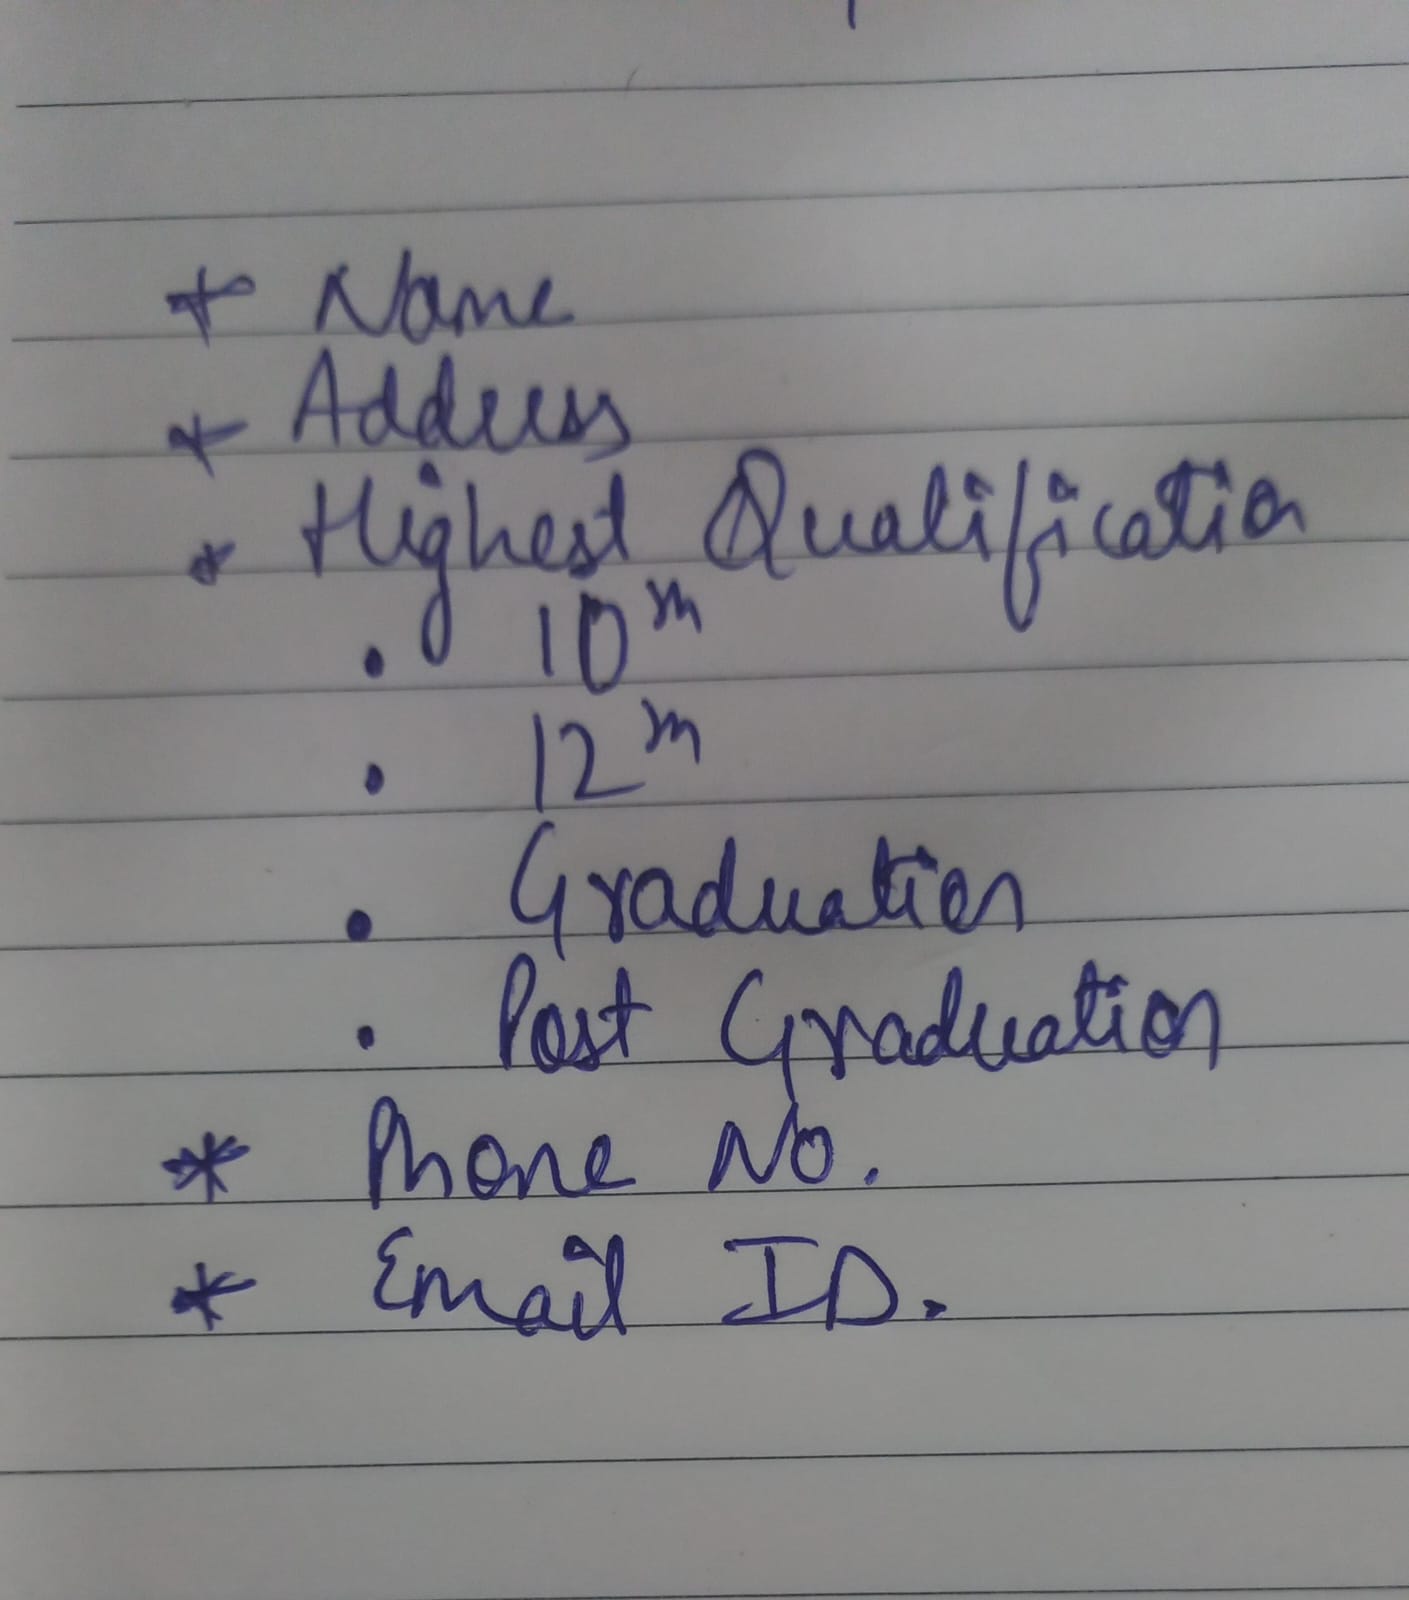 * Name
* Address
* Highest Qualification
• 10th
• 12th
• Graduation
• Post Graduation
* Phone No.
* Email ID.